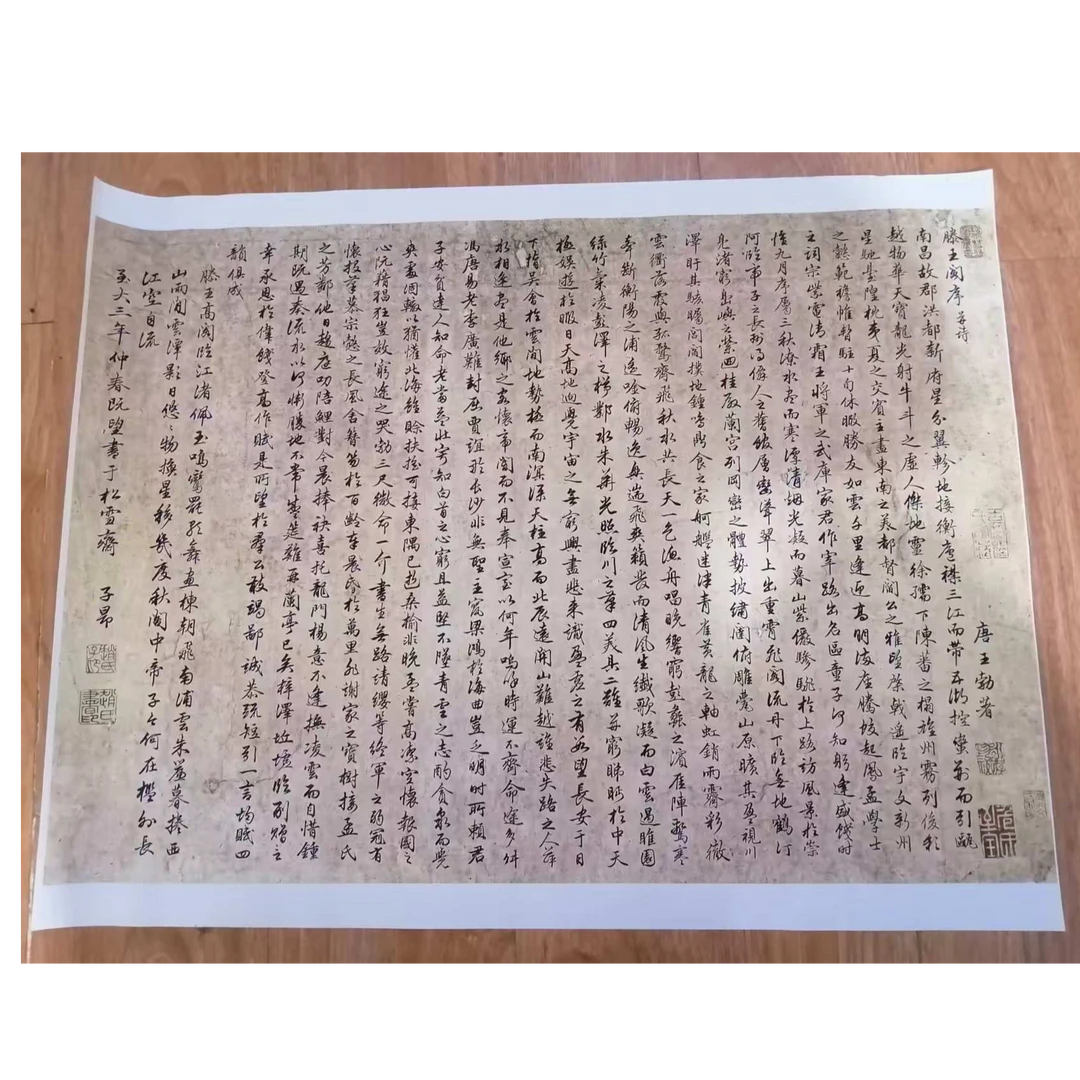 滕王閣序並詩
唐王勃著
南昌故郡洪都新府星分翼軫地接衡廬襟三江而帶五湖控蠻荊而引甌
越物華天寶龍光射牛斗之虛人傑地靈徐孺下陳蕃之榻雄州霧列俊彩
星馳臺隍枕夷夏之交賓主盡東南之美都督閻公之雅望棨戟遙臨宇文新州
之懿範襜帷暫駐十旬休暇勝友如雲千里逢迎高朋滿座騰蛟起鳳孟學士
之詞宗紫電清霜王將軍之武庫家君作宰路出名區童子何知躬逢盛餞時
惟九月序屬三秋潦水盡而寒潭清烟光凝而暮山紫儼驂騑於上路訪風景於崇
阿臨帝子之長洲得僊人之舊館層巒聳翠上出重霄飛閣流丹下臨無地鶴汀
鳧渚窮島嶼之縈迴桂殿蘭宮列岡巒之體勢披繡闥俯雕甍山原曠其盈視川
澤盱其駭矚閭閻撲地鍾鳴鼎食之家舸艦迷津青雀黃龍之軸虹銷雨霽彩徹
雲衢落霞與孤鶩齊飛秋水共長天一色漁舟唱晚響窮彭蠡之濱雁陣驚寒
聲斷衡陽之浦遙吟俯暢逸興遄飛爽籟發而清風生纖歌凝而白雲遏睢園
綠竹氣凌彭澤之樽鄴水朱華光照臨川之筆四美具二難并窮睇眄於中天
極娛遊於暇日天高地迥覺宇宙之無窮興盡悲來識盈虛之有數望長安于日
下指吳會於雲間地勢極而南溟深天柱高而北辰遠關山難越誰悲失路之人萍
水相逢盡是他鄉之客懷帝閽而不見奉宣室以何年嗚呼時運不齊命途多舛
馮唐易老李廣難封屈賈誼於長沙非無聖主竄梁鴻於海曲豈乏明時所賴君
子安貧達人知命老當益壯寧知白首之心窮且益堅不墜青雲之志酌貪泉而覺
爽處涸轍以猶懽北海雖賒扶搖可接東隅已逝桑榆非晚孟嘗高潔空懷報國之
心阮籍猖狂豈效窮途之哭勃三尺微命一介書生無路請纓等終軍之弱冠有
懷投筆慕宗愨之長風舍簪笏於百齡奉晨昏於萬里非謝家之寶樹接孟氏
之芳鄰他日趨庭叨陪鯉對今晨捧袂喜托龍門楊意不逢撫凌雲而自惜鍾
期既遇奏流水以何慚勝地不常盛筵難再蘭亭已矣梓澤坵墟臨別贈言
幸承恩於偉餞登高作賦是所望於羣公敢竭鄙誠恭疏短引一言均賦四
韻俱成
滕王高閣臨江渚佩玉鳴鸞罷歌舞畫棟朝飛南浦雲朱簾暮捲西
山雨閒雲潭影日悠々物換星移幾度秋閣中帝子今何在檻外長
江空自流
至大三年仲春既望書于松雪齋 子昂
趙氏書印